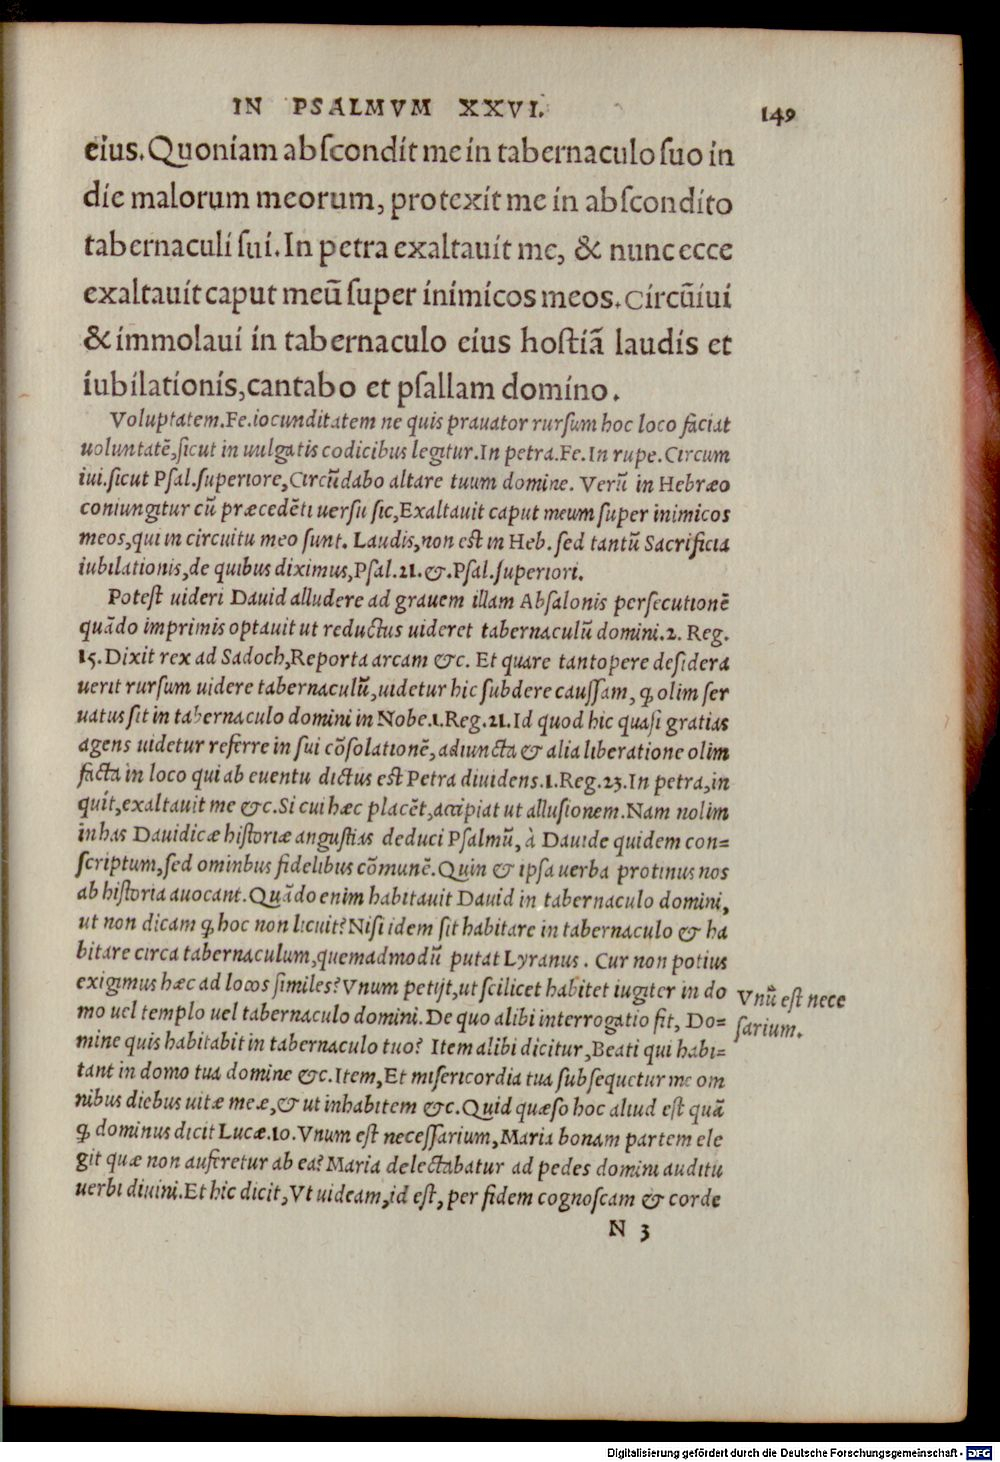 IN PSALMVM XXVI. 149
eius. Quoniam abſcondit me in tabernaculo ſuo in
die malorum meorum, protexit me in abſcondito
tabernaculi ſui. In petra exaltauit me, & nunc ecce
exaltauit caput meū ſuper inimicos meos. Circūiui
& immolaui in tabernaculo eius hoſtiā laudis et
iubilationis, cantabo et pſallam domino.
Voluptatem. Fe. iocunditatem ne quis prauator rurſum hoc loco faciat
uoluntatē, ſicut in uulgatis codicibus legitur. In petra. Fe. In rupe. Circum
iui. ſicut Pſal. ſuperiore, Circūdabo altare tuum domine. Verū in Hebræo
coniungitur cū præcedēti uerſu ſic, Exaltauit caput meum ſuper inimicos
meos, qui in circuitu meo ſunt. Laudis, non eſt in Heb. ſed tantū Sacrificia
iubilationis, de quibus diximus, Pſal. 21. &. Pſal. ſuperiori.
Poteſt uideri Dauid alludere ad grauem illam Abſalonis perſecutionē
quādo imprimis optauit ut reductus uideret tabernaculū domini. 2. Reg.
15. Dixit rex ad Sadoch, Reporta arcam &c. Et quare tantopere deſidera
uerit rurſum uidere tabernaculū, uidetur hic ſubdere cauſſam, ꝙ olim ſer
uatus ſit in tabernaculo domini in Nobe. 1. Reg. 21. Id quod hic quaſi gratias
agens uidetur referre in ſui cōſolationē, adiuncta & alia liberatione olim
facta in loco qui ab euentu dictus eſt Petra diuidens. 1. Reg. 23. In petra, in
quit, exaltauit me &c. Si cui hæc placēt, accipiat ut alluſionem. Nam nolim
in has Dauidicæ hiſtoriæ anguſtias deduci Pſalmū, à Dauide quidem con=
ſcriptum, ſed ominbus fidelibus cōmunē. Quin & ipſa uerba protinus nos
ab hiſtoria auocant. Quādo enim habitauit Dauid in tabernaculo domini,
ut non dicam ꝙ hoc non licuit? Niſi idem ſit habitare in tabernaculo & ha
bitare circa tabernaculum, quemadmodū putat Lyranus. Cur non potius
exigimus hæc ad locos ſimiles? Vnum petijt, ut ſcilicet habitet iugiter in do
mo uel templo uel tabernaculo domini. De quo alibi interrogatio fit, Do=
mine quis habitabit in tabernaculo tuo? Item alibi dicitur, Beati qui habi=
tant in domo tua domine &c. Item, Et miſericordia tua ſubſequetur me om
nibus diebus uitæ meæ, & ut inhabitem &c. Quid quæſo hoc aliud eſt quā
ꝙ dominus dicit Lucæ. 10. Vnum eſt neceſſarium, Maria bonam partem ele
git quæ non auferetur ab ea? Maria delectabatur ad pedes domini auditu
uerbi diuini. Et hic dicit, Vt uideam, id eſt, per fidem cognoſcam & corde
N 3
Vnū eſt nece
ſarium.
Digitalisierung gefördert durch die Deutsche Forschungsgemeinschaft - DFG